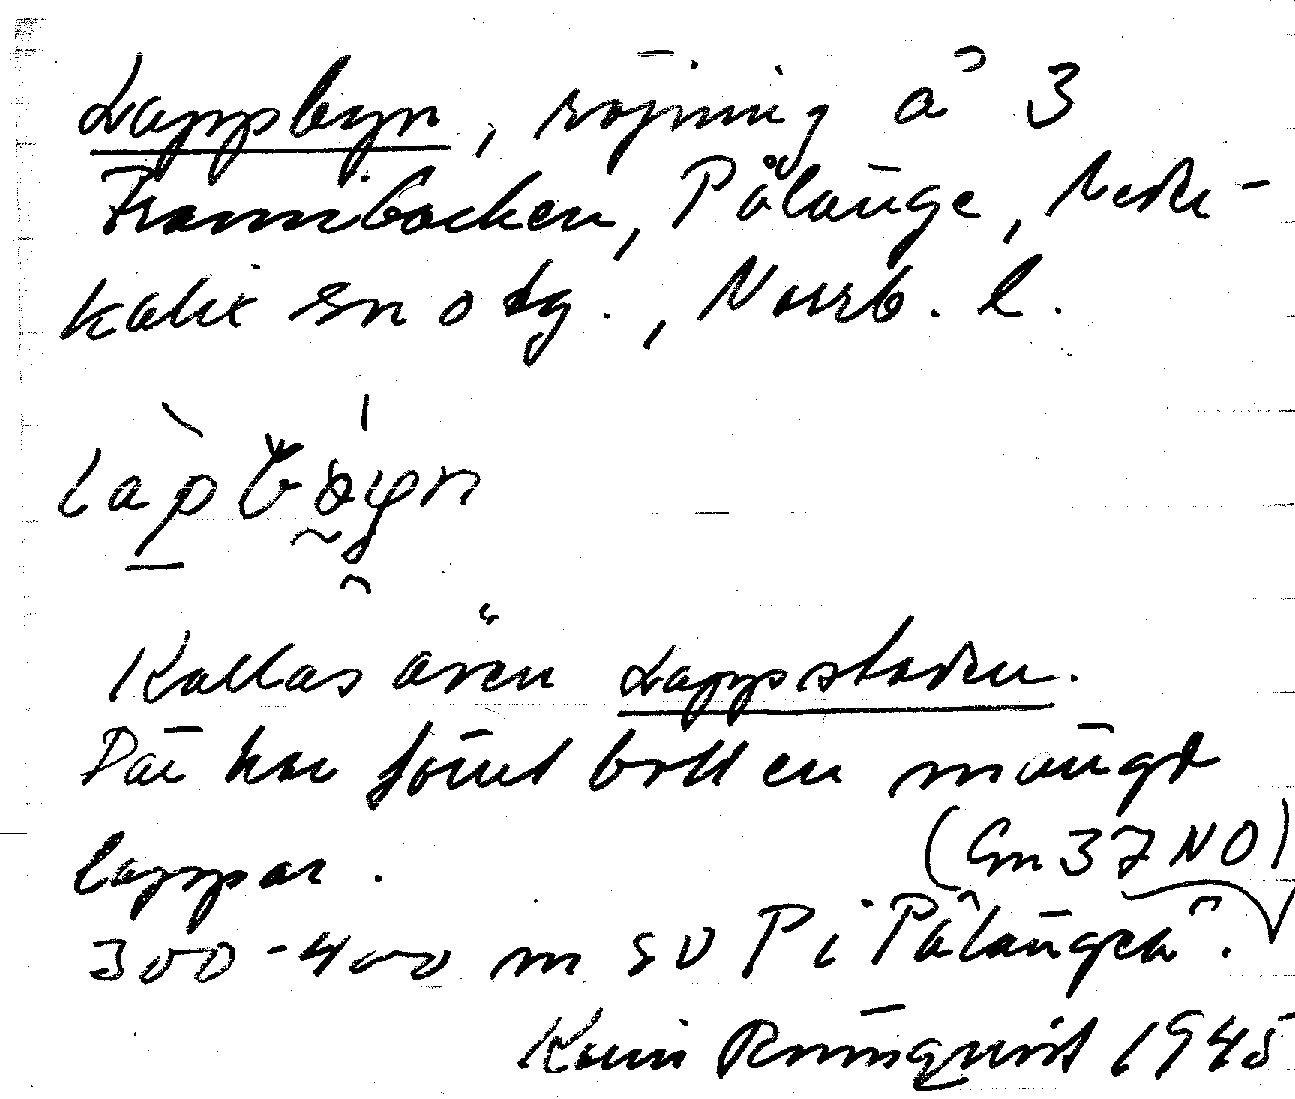 Lappbyn, röjning å 3
Frannibacken, Pålänge, Neder-
kalix sn o tg., Norrb. l.
Kallas även Lappstaden.
Där har förut bott en mängd
lappar. (Gm 37 NO)
300-400 m SV P i Pålänge".
Rönnqvist 1945